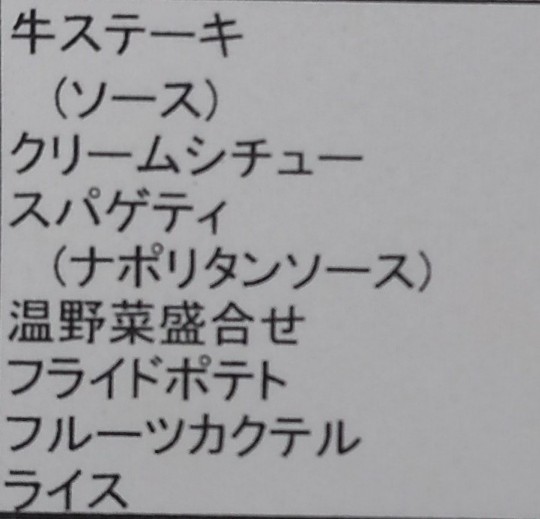 牛ステーキ
(ソース)
クリームシチュー
スパゲティ
(ナポリタンソース)
温野菜盛合せ
フライドポテト
フルーツカクテル
ライス